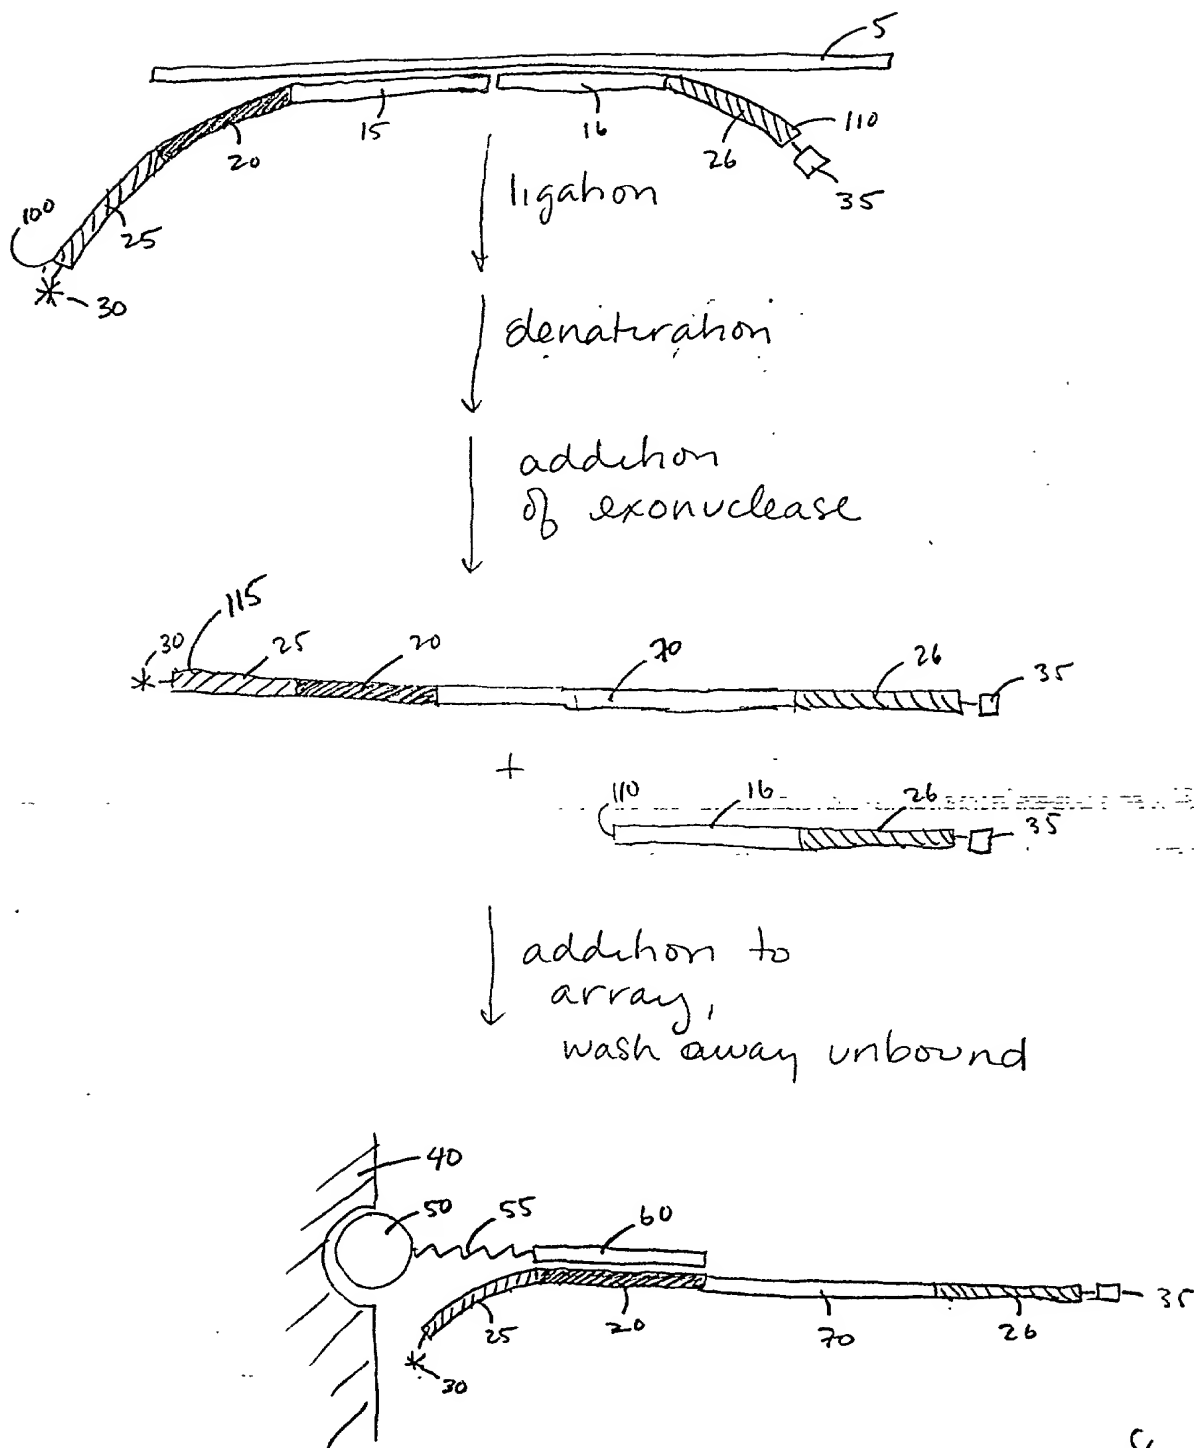 5
15
16
110
20
26
35
ligation
100
25
30
denaturation
addition
of exonuclease
115
30
25
20
70
26
35
+
110
16
26
35
addition to
array,
wash away unbound
40
50
55
60
35
25
20
70
26
30